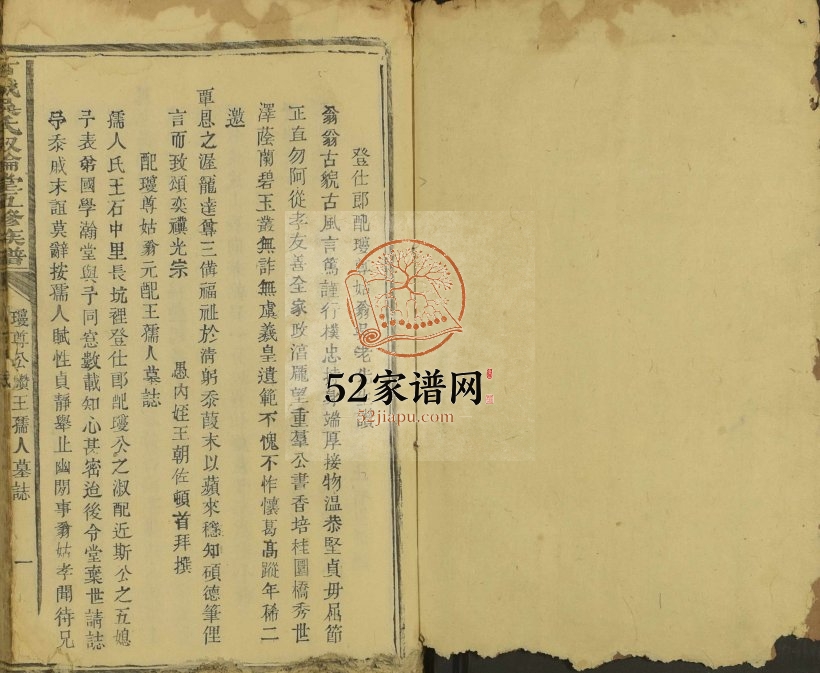 登仕郎配瓊尊姑翁吳老先
翁翁古貌古風言篤謹行樸忠端厚接物溫恭堅貞毋屈節
正直勿阿從孝友善全家政治龐望重羣公書香培桂圜橋秀世
澤蔭蘭碧玉叢無詐無虞羲皇遺範不愧不怍懷葛高蹤年稀二
邀
覃恩之渥龍達尊三備福祉於清躬忝葭末以蘋來稔知碩德筆俚
言而致頌奕禩光宗
愚內姪王朝佐頓首拜撰
配瓊尊姑翁元配王孺人墓誌
孺人氏王石中里長坑裡登仕郎配瓊公之淑配近斯公之五媳
子表弟國學瀚堂與予同窓數載知心甚密迨後令堂棄世請誌
予忝戚末誼莫辭按孺人賦性貞靜舉止幽閒事翁姑孝聞待兄
氏叙倫堂五修族譜
瓊尊公讚王孺人墓誌
一
52家谱网
52jiapu.com